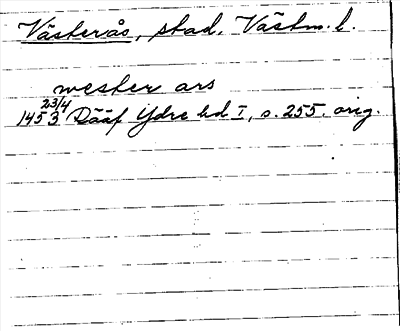 Västerås, stad. Västm. l.
wester ars
1453 23/4 Rääf Ydre hd I, s. 255. orig.